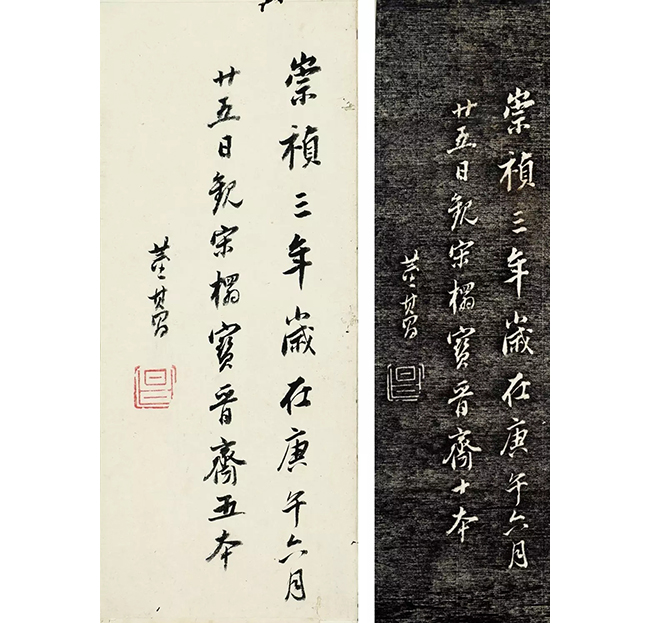 崇禎三年歲在庚午六月
廿五日觀宋榻寶晉齋五本
董其昌
崇禎三年歲在庚午六月
廿五日觀宋榻寶晉齋十本
董其昌